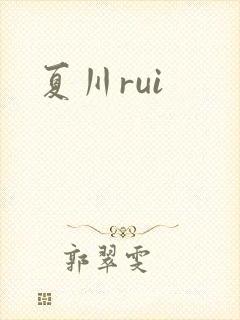 夏川rui
郭翠雯